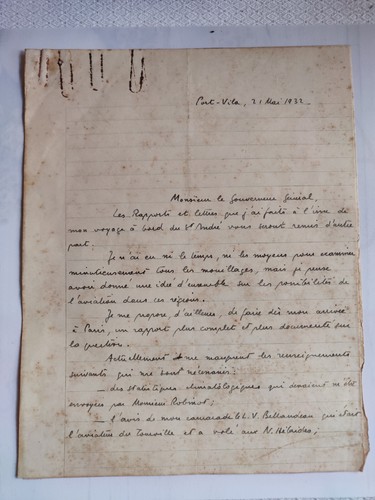 Port-Vila, 21 Mai 1932
Monsieur le Gouverneur Général,
Les Rapports et lettres que j'ai faits à l'issue de
mon voyage à bord du St André vous seront remis d'autre
part.
Je n'ai eu ni le temps, ni les moyens pour examiner
minutieusement tous les mouillages, mais je pense
avoir donné une idée d'ensemble sur les possibilités de
l'aviation dans ces régions.
Je me propose, d'ailleurs, de faire dès mon arrivée
à Paris, un rapport plus complet et plus documenté sur
la question.
Actuellement me manquent les renseignements
suivants qui me sont nécessaires:
— des statistiques climatologiques qui devaient m'être
envoyées par Monsieur
— l'avis de mon camarade le L.V. qui était
l'aviateur du Tourville et a volé aux N. Hébrides;